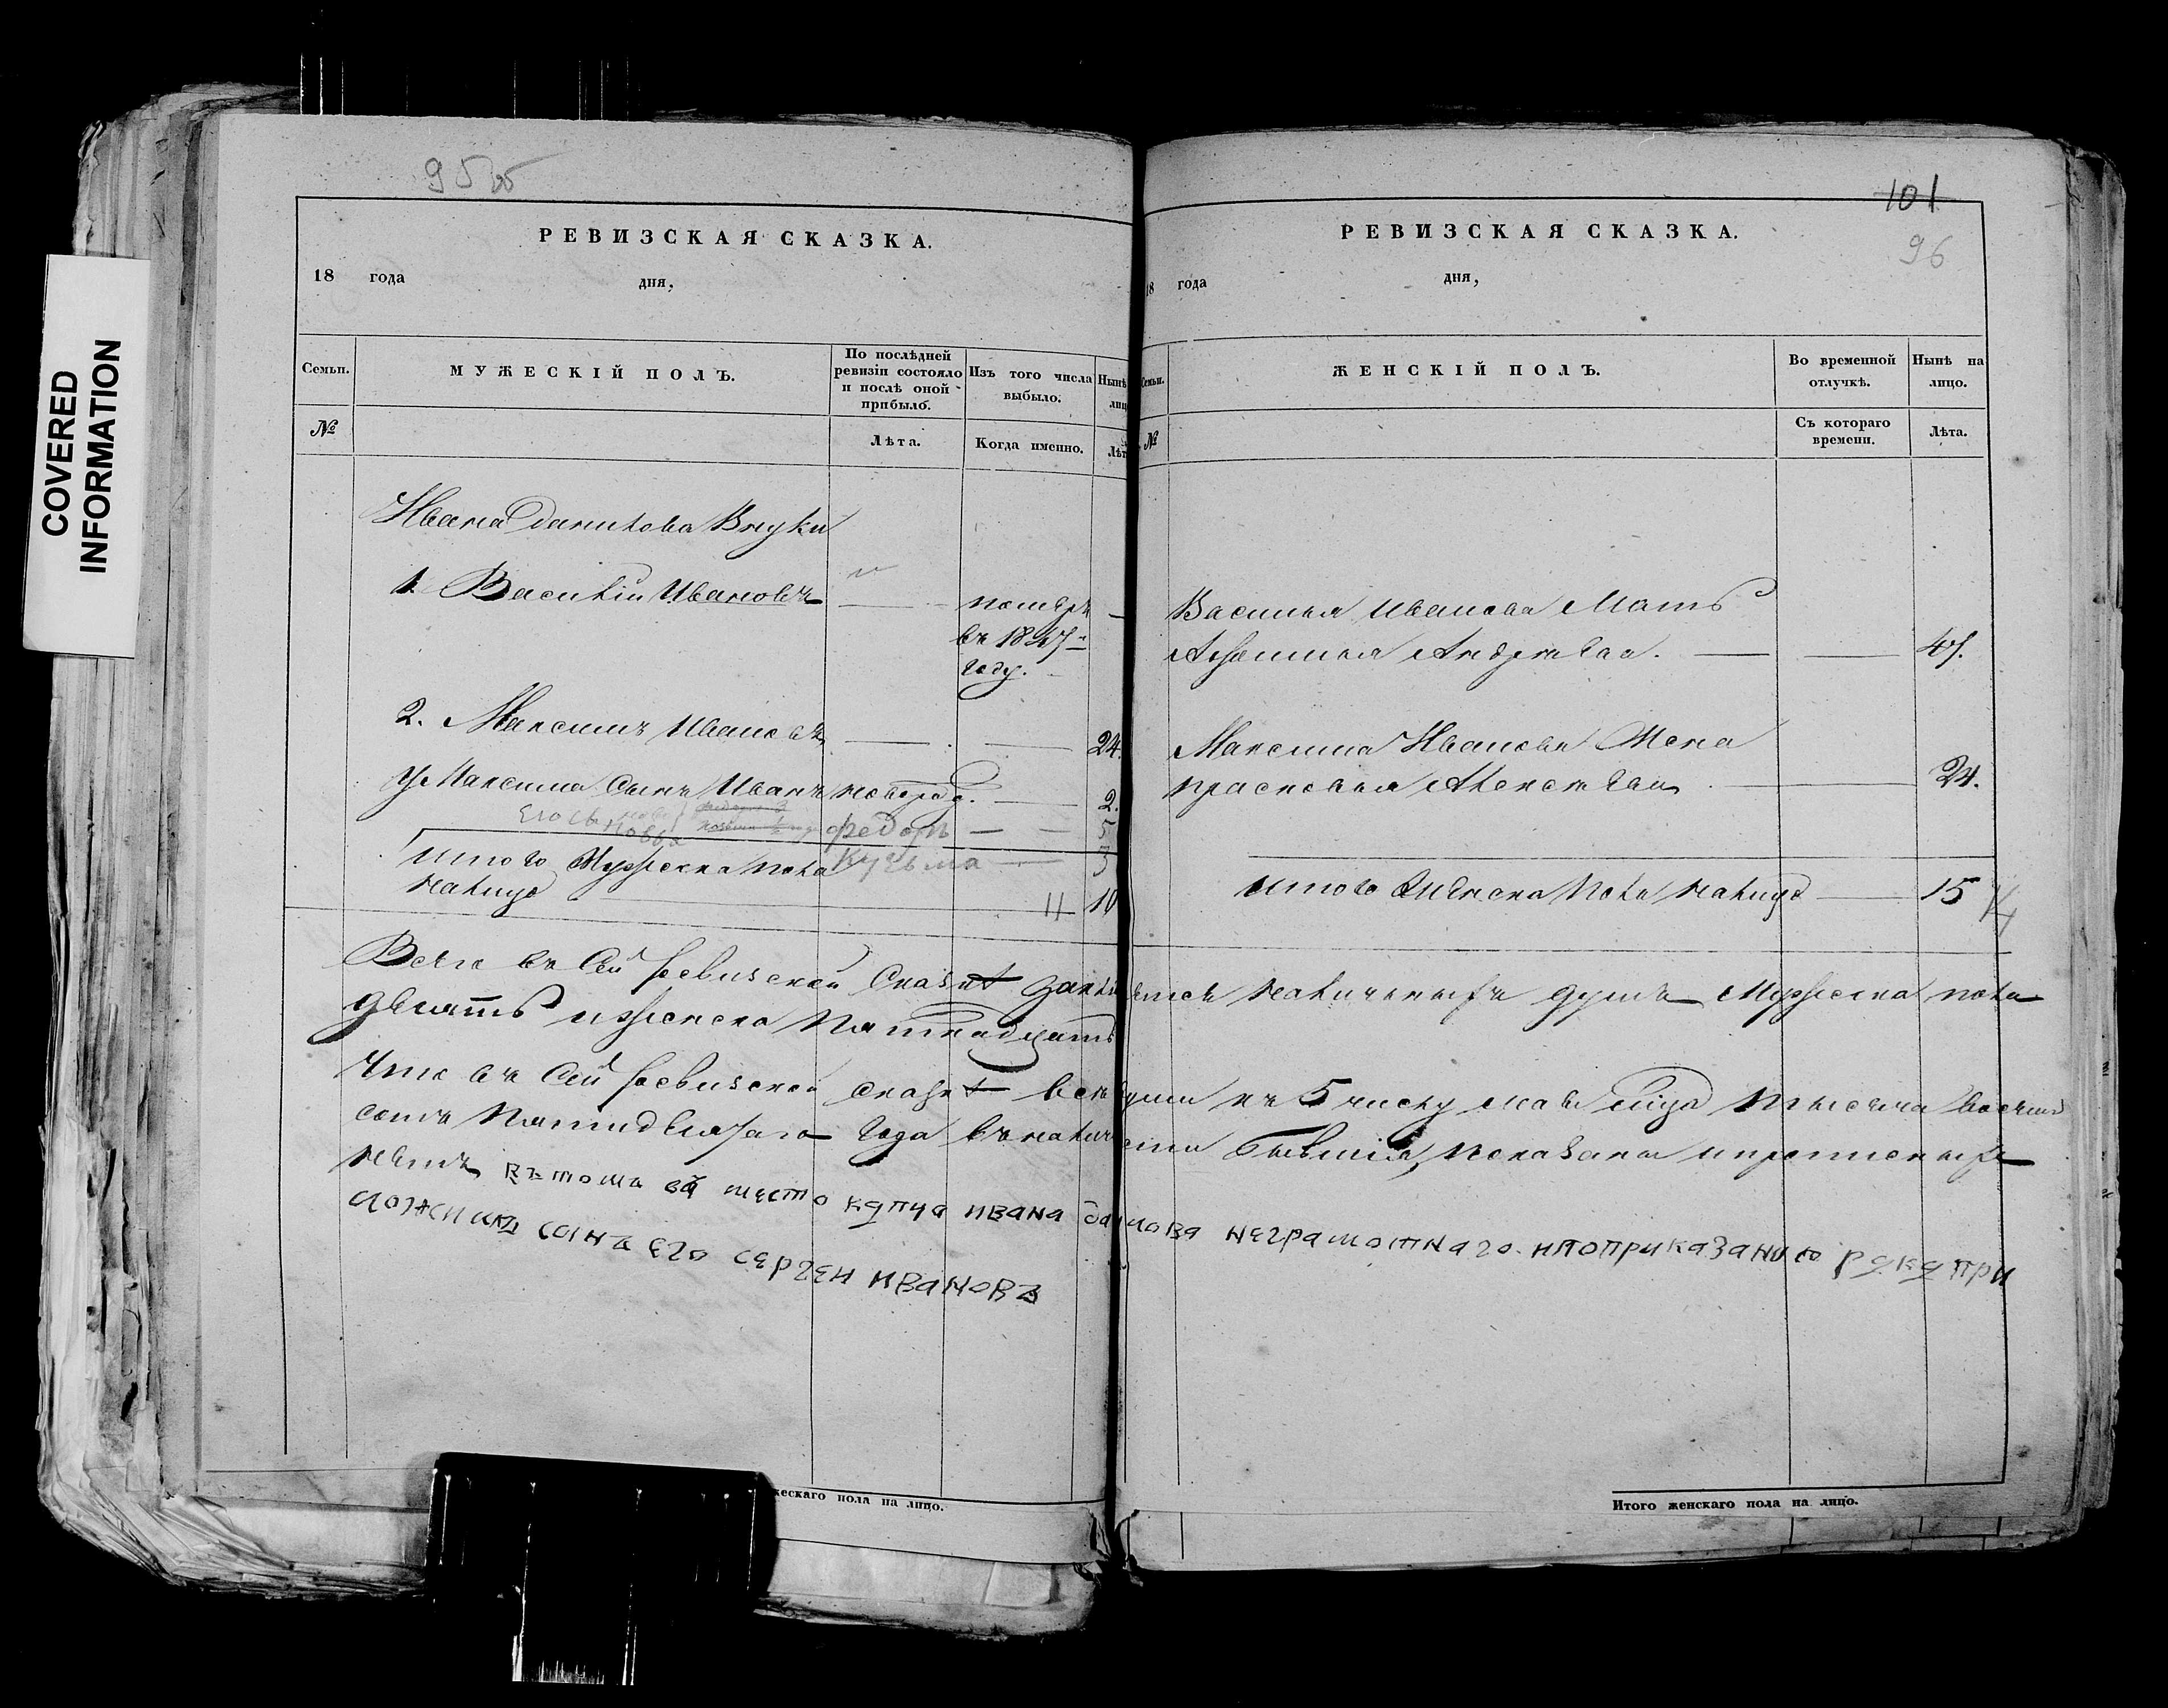 COVERED
INFORMATION
95 об
РЕВИЗСКАЯ СКАЗКА.
18 года дня,
Семьи. МУЖЕСКІЙ ПОЛЪ. По послѣдней ревизіи состояло и послѣ оной прибыло. Изъ того числа выбыло. Нынѣ
№ Лѣта. Когда именно.
Ивана Данилова Внуки
1. Василій Ивановъ
померъ
въ 1847
году.
2. Максимъ Ивановъ 24.
У Максима Сынъ Иванъ новорож. 2.
Его сыновья Федоръ 5
Итого Мужеска пола Кузьма 3
налицо 11 10
101
96
РЕВИЗСКАЯ СКАЗКА.
18 года дня,
Семьи. ЖЕНСКІЙ ПОЛЪ. Во временной отлучкѣ. Нынѣ на лицо.
№ Съ котораго времени. Лѣта.
Василья Иванова Мать
Аѳимья Андреева. 47.
Максима Иванова Жена
прасковья Алексеева 24.
Итого Женска пола налицо 15 14
Всего въ Сей ревизской Сказкѣ наличныхъ душъ Мужеска пола
девять и женска пятнадцать
Что въ Сей ревизской сказкѣ все души къ 5 числу мая тысяча восемь
сотъ пятидесятаго года въ наличности бывшія, показаны и прописныхъ
нетъ въ томъ въ место купца ивана данилова неграмотнаго. ипоприказанию руку при
ложилъ сынъ его сергеи ивановъ
жескаго пола на лицо.
Итого женскаго пола на лицо.